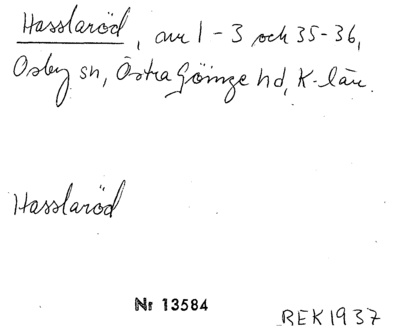 Hasslaröd, avr 1-3 och 35-36,
Osby sn, Östra Göinge hd, K-län.
Hasslaröd
Nr 13584
REK1937